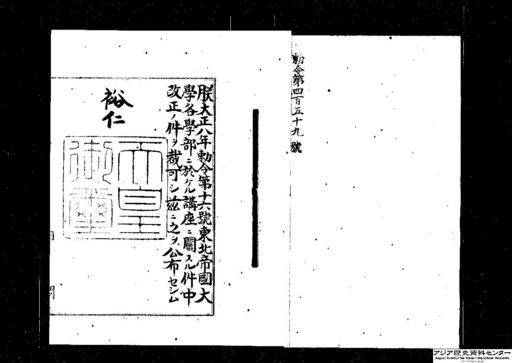 勅令第四百五十九號
朕大正八年勅令第十六號東北帝國大
學各學部ニ於ケル講座ニ關スル件中
改正ノ件ヲ裁可シ茲ニ之ヲ公布セシム
裕仁
天皇
御璽
アジア歴史資料センター
Japan Center for Asian Historical Records